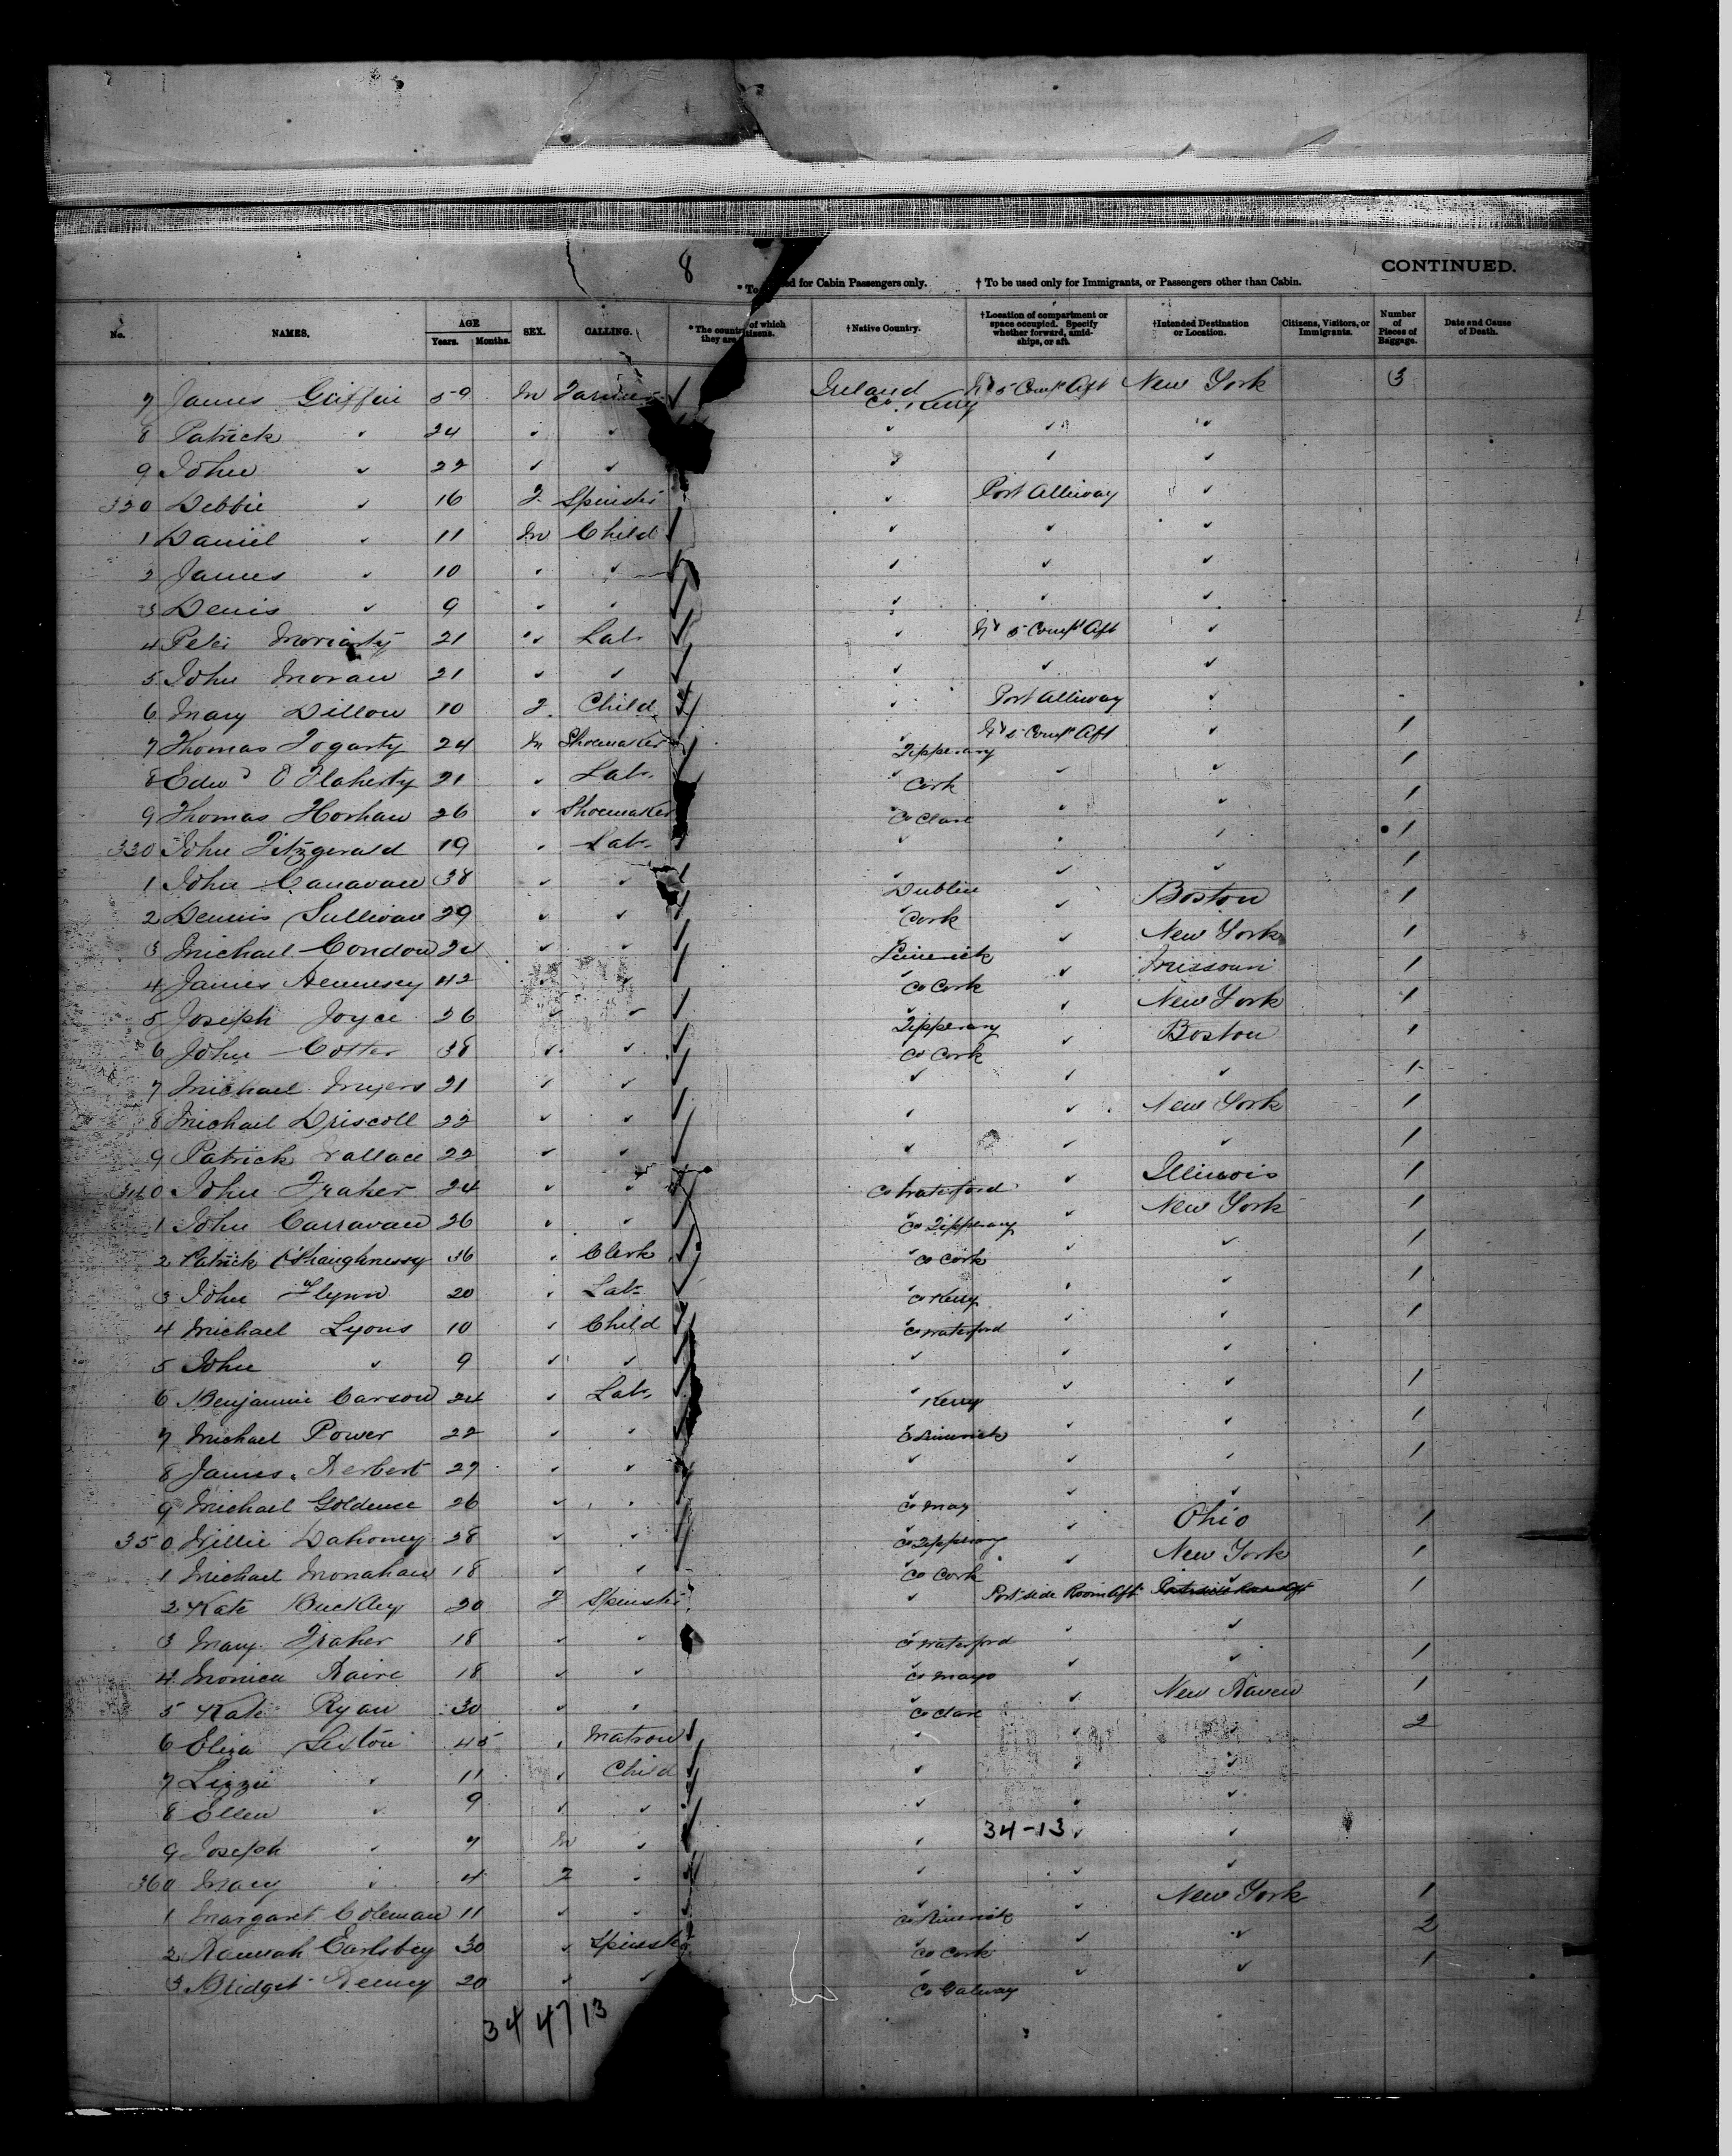 8
CONTINUED.
* To ed for Cabin Passengers only. † To be used only for Immigrants, or Passengers other than Cabin.
No. NAMES. AGE Years. Months. SEX. CALLING. * The country of which they are citizens. † Native Country. † Location of compartment or space occupied. Specify whether forward, amidships, or aft. † Intended Destination or Location. Citizens, Visitors, or Immigrants. Number of Pieces of Baggage. Date and Cause of Death.
7 James Griffin 59 M Farmer ✓ Ireland Co. Kerry 5 Compt Aft New York 3
8 Patrick " 24 " " " " "
9 John " 22 " " " " "
320 Debbie " 16 F. Spinster " Port Alleway "
1 Daniel " 11 M Child ✓ " " "
2 James " 10 " " ✓ " " "
3 Denis " 9 " " ✓ " " "
4 Peter Moriarty 21 " Lab. ✓ " 5 Compt Aft "
5 John Moran 21 " " ✓ " " "
6 Mary Dillon 10 F. Child ✓ " Port Alleway "
7 Thomas Fogarty 24 M Shoemaker ✓ " Tipperary 5 Compt Aft " 1
8 Edwd O Flaherty 21 " Lab. " Cork " " 1
9 Thomas Horhan 26 " Shoemaker Co Clare " " 1
330 John Fitzgerald 19 " Lab. " " " 1
1 John Canavan 38 " " ✓ " Dublin " " 1
2 Dennis Sullivan 29 " " ✓ " Cork " Boston 1
3 Michael Condon 24 " " ✓ Limerick " New York 1
4 James Hennesey 42 " " ✓ " Co Cork " Missouri 1
5 Joseph Joyce 26 " " ✓ " Tipperary " New York 1
6 John Cotter 38 " " ✓ Co Cork " Boston 1
7 Michael Myers 21 " " ✓ " " " 1
8 Michael Driscoll 22 " " ✓ " " New York 1
9 Patrick Wallace 22 " " ✓ " " " 1
340 John Fraher 24 " " ✓ Co Waterford " Illinois 1
1 John Carravan 26 " " ✓ " Co Tipperary " New York 1
2 Patrick O'Shaughnessy 36 " Clerk ✓ " Co Cork " " 1
3 John Flynn 20 " Lab. ✓ " Co Kerry " " 1
4 Michael Lyons 10 " Child ✓ " Co Waterford " " 1
5 John " 9 " " ✓ " " "
6 Benjamin Carson 24 " Lab. ✓ " Kerry " " 1
7 Michael Power 22 " " ✓ " Co Limerick " " 1
8 James Herbert 27 " " ✓ " " " 1
9 Michael 26 " " ✓ " Co May " "
350 Willie Dahoney 28 " " ✓ " Co Tipperary " Ohio 1
1 Michael Monahan 18 " " " Co Cork " New York 1
2 Kate Buckley 20 F. Spinster " Port side Room Aft " 1
3 Mary Fraher 18 " " " Co Waterford " "
4 Monica Haire 18 " " " Co Mayo " " 1
5 Kate Ryan 30 " " " Co Clare " New Haven 1
6 Eliza Sexton 45 " Matron ✓ " " " 2
7 Lizzie " 11 " Child ✓ " " "
8 Ellen " 9 " " ✓ " " "
9 Joseph " 7 M " ✓ " 34-13 " "
360 Mary " 4 F " ✓ " " "
1 Margaret Coleman 11 " " ✓ " Co Limerick " New York 1
2 Hannah 30 " Spinster " Co Cork " " 2
3 Bridget 20 " " " Co Galway " " 1
34 4713